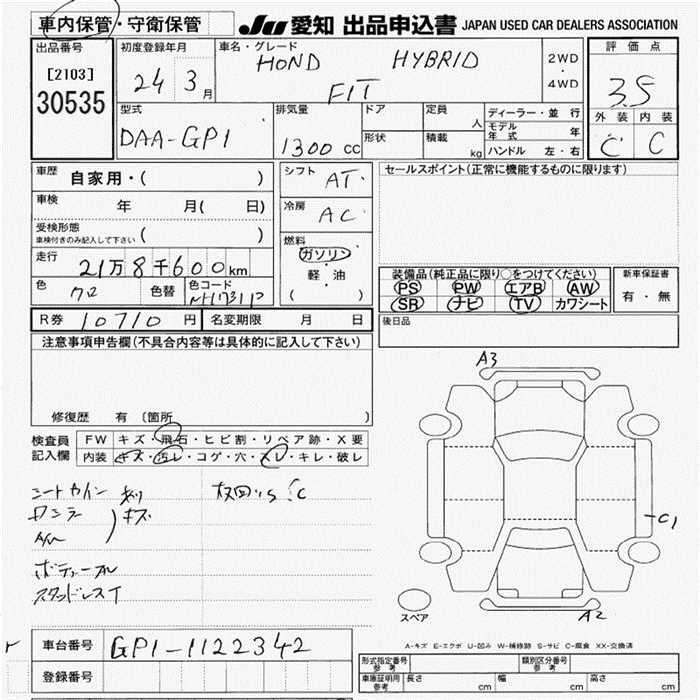 車内保管・守衛保管 JU 愛知 出品申込書 JAPAN USED CAR DEALERS ASSOCIATION
出品番号 初度登録年月 車名・グレード 評価点
[2103] 24 3月 HOND HYBRID 2WD・4WD
30535 FIT 3.5
型式 排気量 ドア 定員 人 ディーラー・並行 外装 内装
DAA-GP1 1300cc 形状 積載 kg モデル年式 年 C C
ハンドル 左・右
車歴 自家用・( ) シフト AT セールスポイント(正常に機能するものに限ります)
車検 年 月( 日) 冷房 AC
受検形態 ( )
車検付きのみ記入して下さい
走行 21万8千600km 燃料 ガソリン・軽・油 ( )
装備品(純正品に限り○をつけてください) 新車保証書
色 クロ 色替 色コード NH731P
PS PW エアB AW 有・無
SR ナビ TV カワシート
R券 10710円 名変期限 月 日 後日品
注意事項申告欄(不具合内容等は具体的に記入して下さい)
修復歴 有 〔箇所
検査員記入欄 FW キズ・飛石・ヒビ割・リペア跡・X要
内装 キズ・汚レ・コゲ・穴・スレ・キレ・破レ
A3
C1
A2
スペア
A-キズ E-エクボ U-凹み W-補修跡 S-サビ C-腐食 XX-交換済
車台番号 GP1-1122342
登録番号
形式指定番号 参考 類別区分番号 参考
車庫証明用 参考 長さ cm 幅 cm 高さ cm